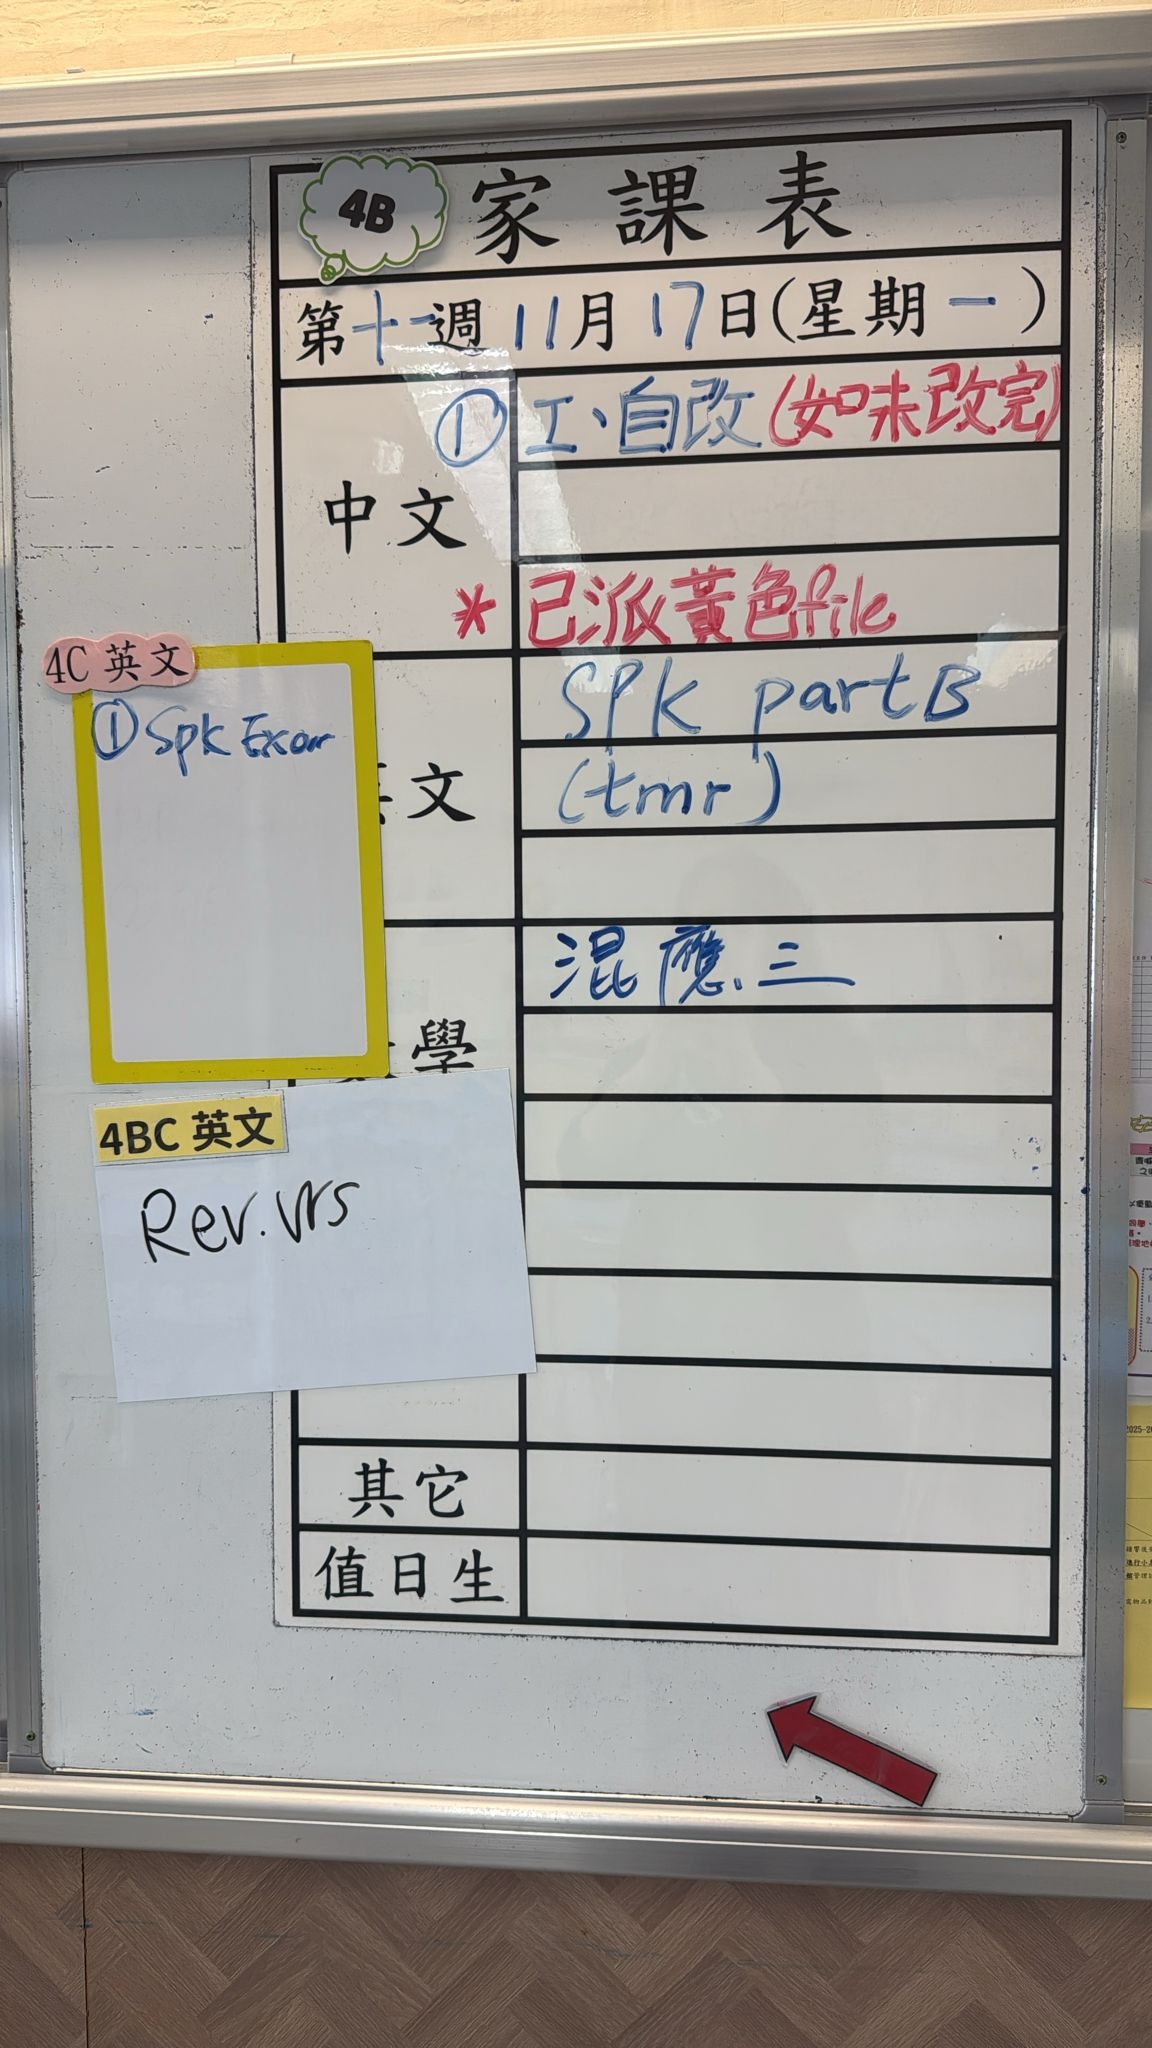 4B 家課表
第十一週 11月17日(星期一)
中文
① 工、自改(如味改完)
* 已派黃色file
4C 英文
① Spk Exam
文
SPK part B
(tmr)
學
混應、三
4BC 英文
Rev. Ws
其它
值日生